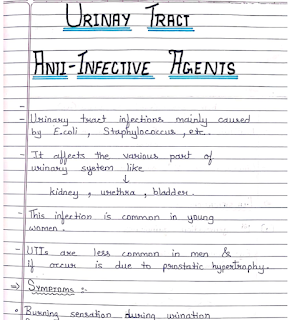 URINAY TRACT
ANTI-INFECTIVE AGENTS
-
- Urinary tract infections mainly caused
by E.coli , Staphylococcus , etc.
- It affects the various part of
urinary system like
↓
kidney , urethra , bladder.
- This infection is common in young
women.
- UTIs are less common in men &
if occur is due to prostatic hypertrophy.
⇒ SYMPTOMS :-
• Burning sensation during urination